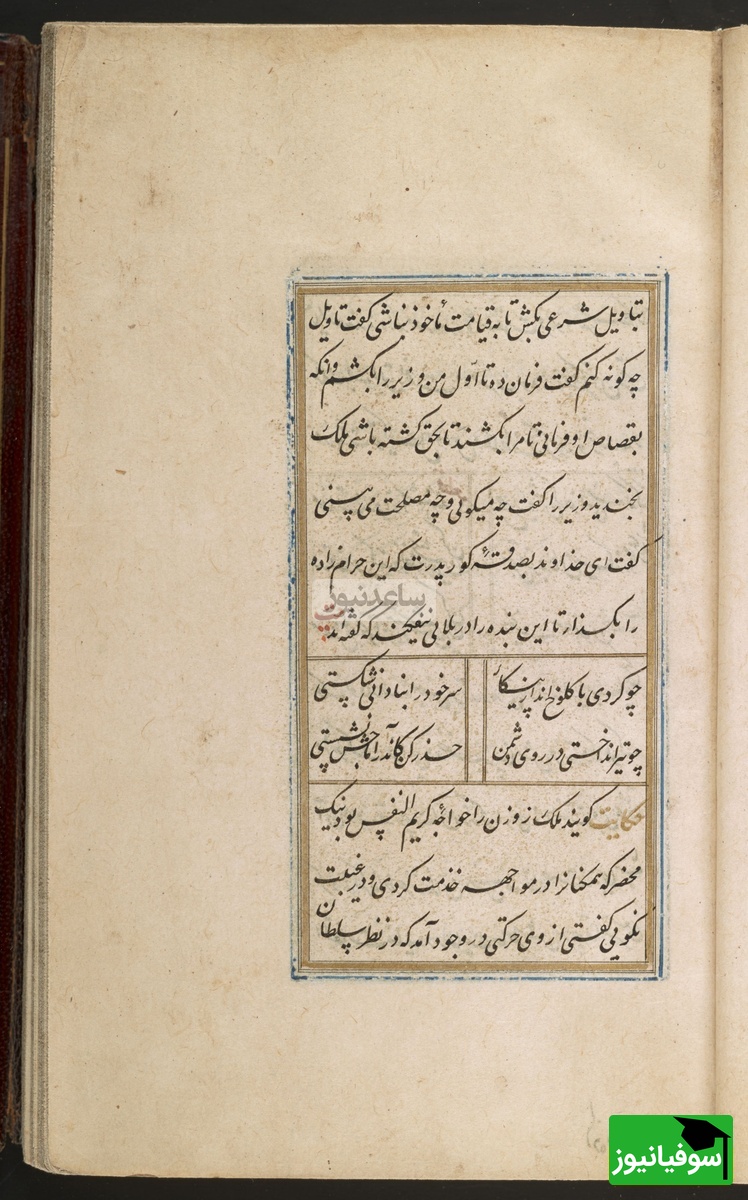 بتاویل شرعی بکش تا به قیامت مأخوذ نباشی گفت تاویل
چه کونه کنم گفت فرمان ده تا اول من وزیر را بکشم وانکه
بقصاص او فرمائی تا مرا بکشند تا بحق کشته باشی ملک
بخندید وزیر را گفت چه میکوئی وچه مصلحت می بینی
گفت ای خداوند بصدقهٔ کور پدرت که این حرام زاده
را بکذار تا این بنده را در بلائی نیفکند که گفته اند
ساعدنیوز
چو کردی با کلوخ انداز پیکار سر خود را بنادانی شکستی
چو تیر انداختی در روی دشمن حذر کن کاندر آماجش نشستی
حکایت کویند ملک زوزن را خواجهٔ کریم النفس بود نیک
محضر که همکنانرا در مواجهه خدمت کردی ودر غیبت
نکویی گفتی از وی حرکتی در وجود آمد که در نظر سلطان
سوفیانیوز